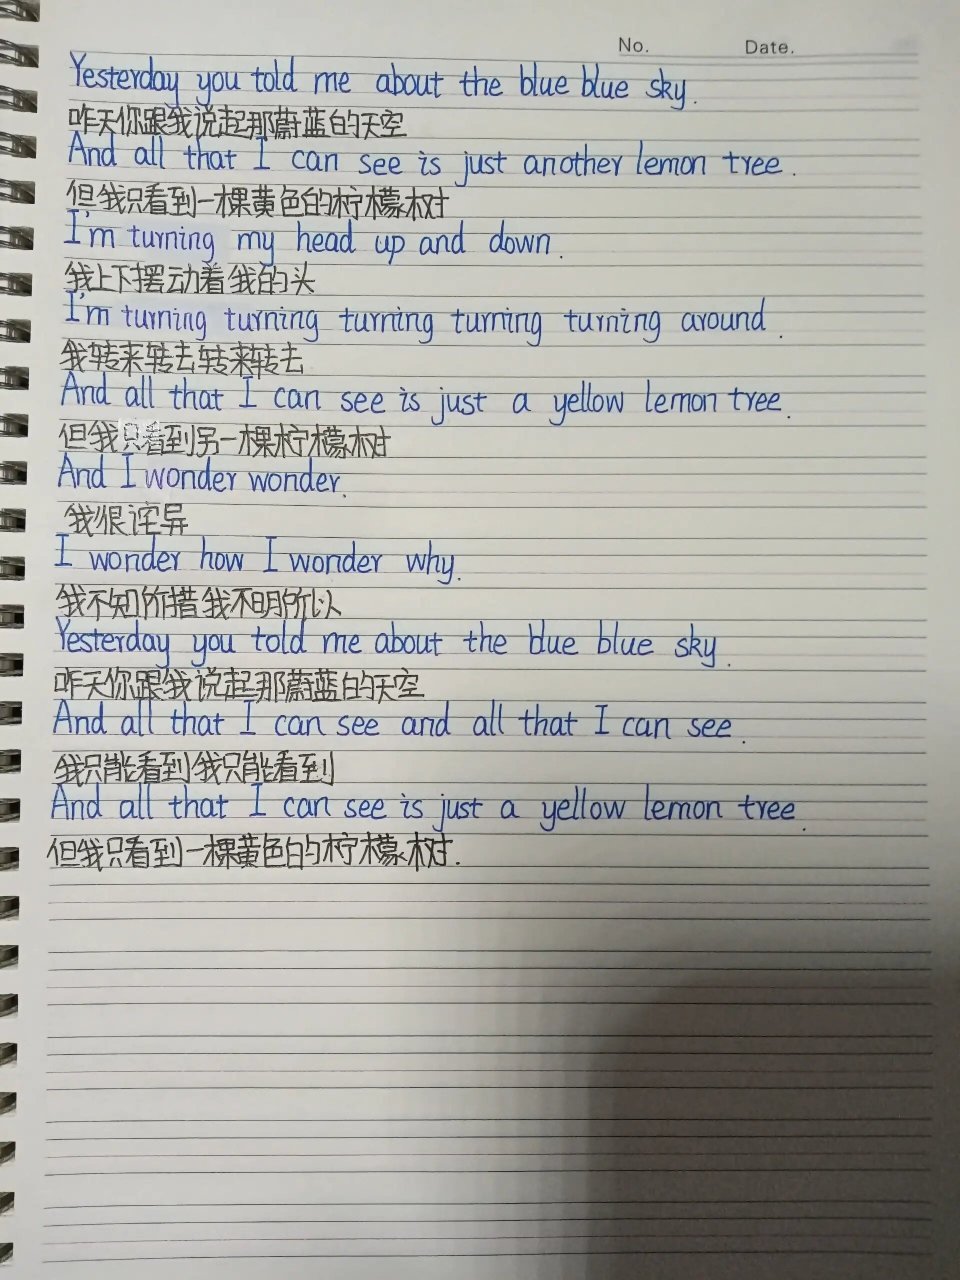 No. Date.
Yesterday you told me about the blue blue sky.
昨天你跟我说起那蔚蓝的天空
And all that I can see is just another lemon tree.
但我只看到一棵黄色的柠檬树
I'm turning my head up and down.
我上下摆动着我的头
I'm turning turning turning turning turning around.
我转来转去转来转去
And all that I can see is just a yellow lemon tree.
但我只看到另一棵柠檬树
And I wonder wonder.
我很诧异
I wonder how I wonder why.
我不知所措我不明所以
Yesterday you told me about the blue blue sky.
昨天你跟我说起那蔚蓝的天空
And all that I can see and all that I can see.
我只能看到我只能看到
And all that I can see is just a yellow lemon tree.
但我只看到一棵黄色的柠檬树.